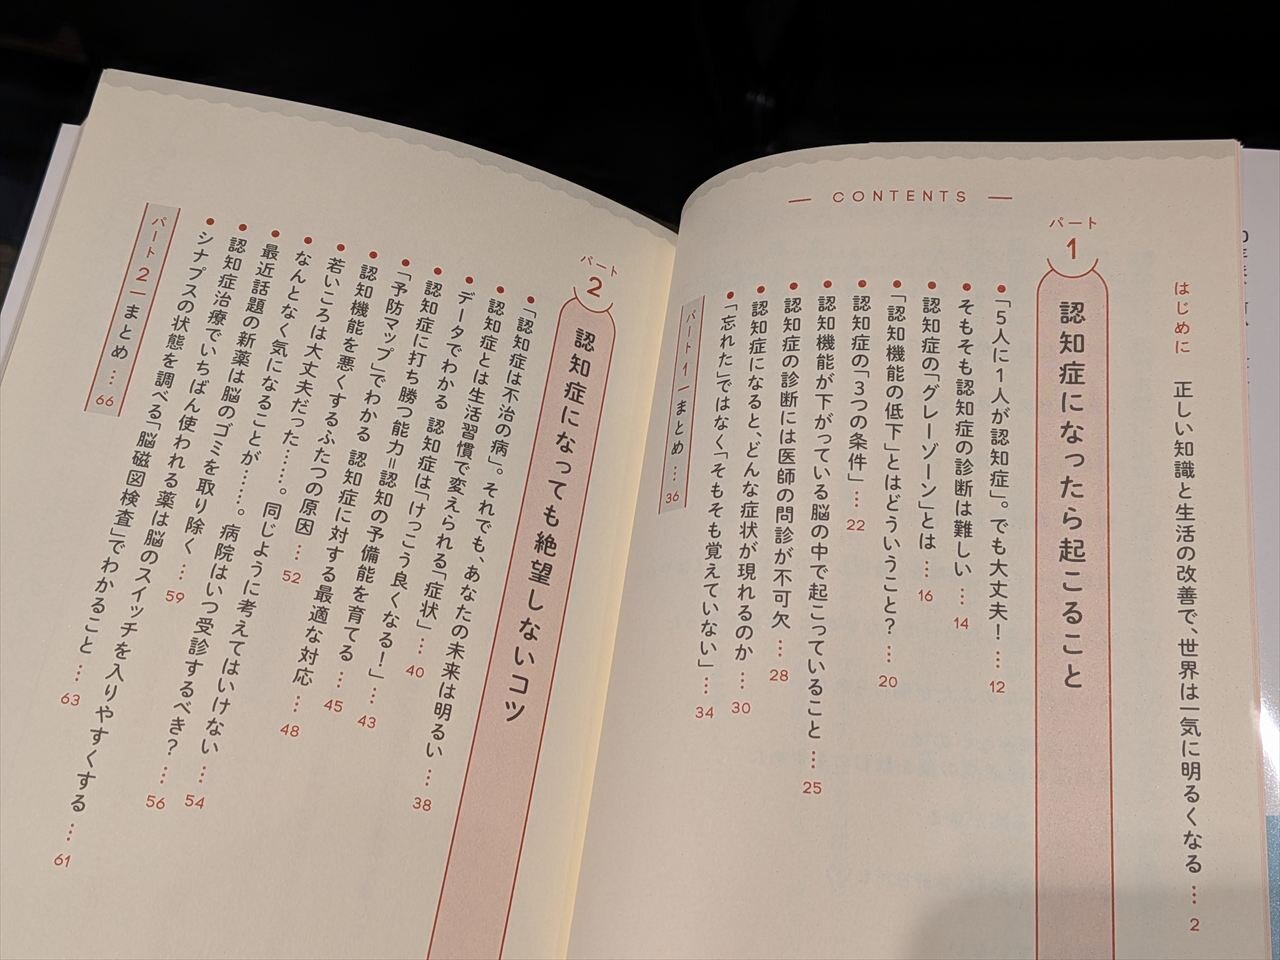 CONTENTS
はじめに 正しい知識と生活の改善で、世界は一気に明るくなる … 2
パート
1
認知症になったら起こること
● 「5人に1人が認知症」。でも大丈夫! … 12
● そもそも認知症の診断は難しい … 14
● 認知症の「グレーゾーン」とは … 16
● 「認知機能の低下」とはどういうこと? … 20
● 認知症の「3つの条件」 … 22
● 認知機能が下がっている脳の中で起こっていること … 25
● 認知症の診断には医師の問診が不可欠 … 28
● 認知症になると、どんな症状が現れるのか … 30
● 「忘れた」ではなく「そもそも覚えていない」 … 34
パート1 まとめ … 36
パート
2
認知症になっても絶望しないコツ
● 「認知症は不治の病」。それでも、あなたの未来は明るい … 38
● 認知症とは生活習慣で変えられる「症状」 … 40
● データでわかる 認知症は「けっこう良くなる!」 … 43
● 認知症に打ち勝つ能力=認知の予備能を育てる … 45
● 「予防マップ」でわかる 認知症に対する最適な対応 … 48
● 認知機能を悪くするふたつの原因 … 52
● 若いころは大丈夫だった……。同じように考えてはいけない … 54
● なんとなく気になることが……。病院はいつ受診するべき? … 56
● 最近話題の新薬は脳のゴミを取り除く … 59
● 認知症治療でいちばん使われる薬は脳のスイッチを入りやすくする … 61
● シナプスの状態を調べる「脳磁図検査」でわかること … 63
パート2 まとめ … 66